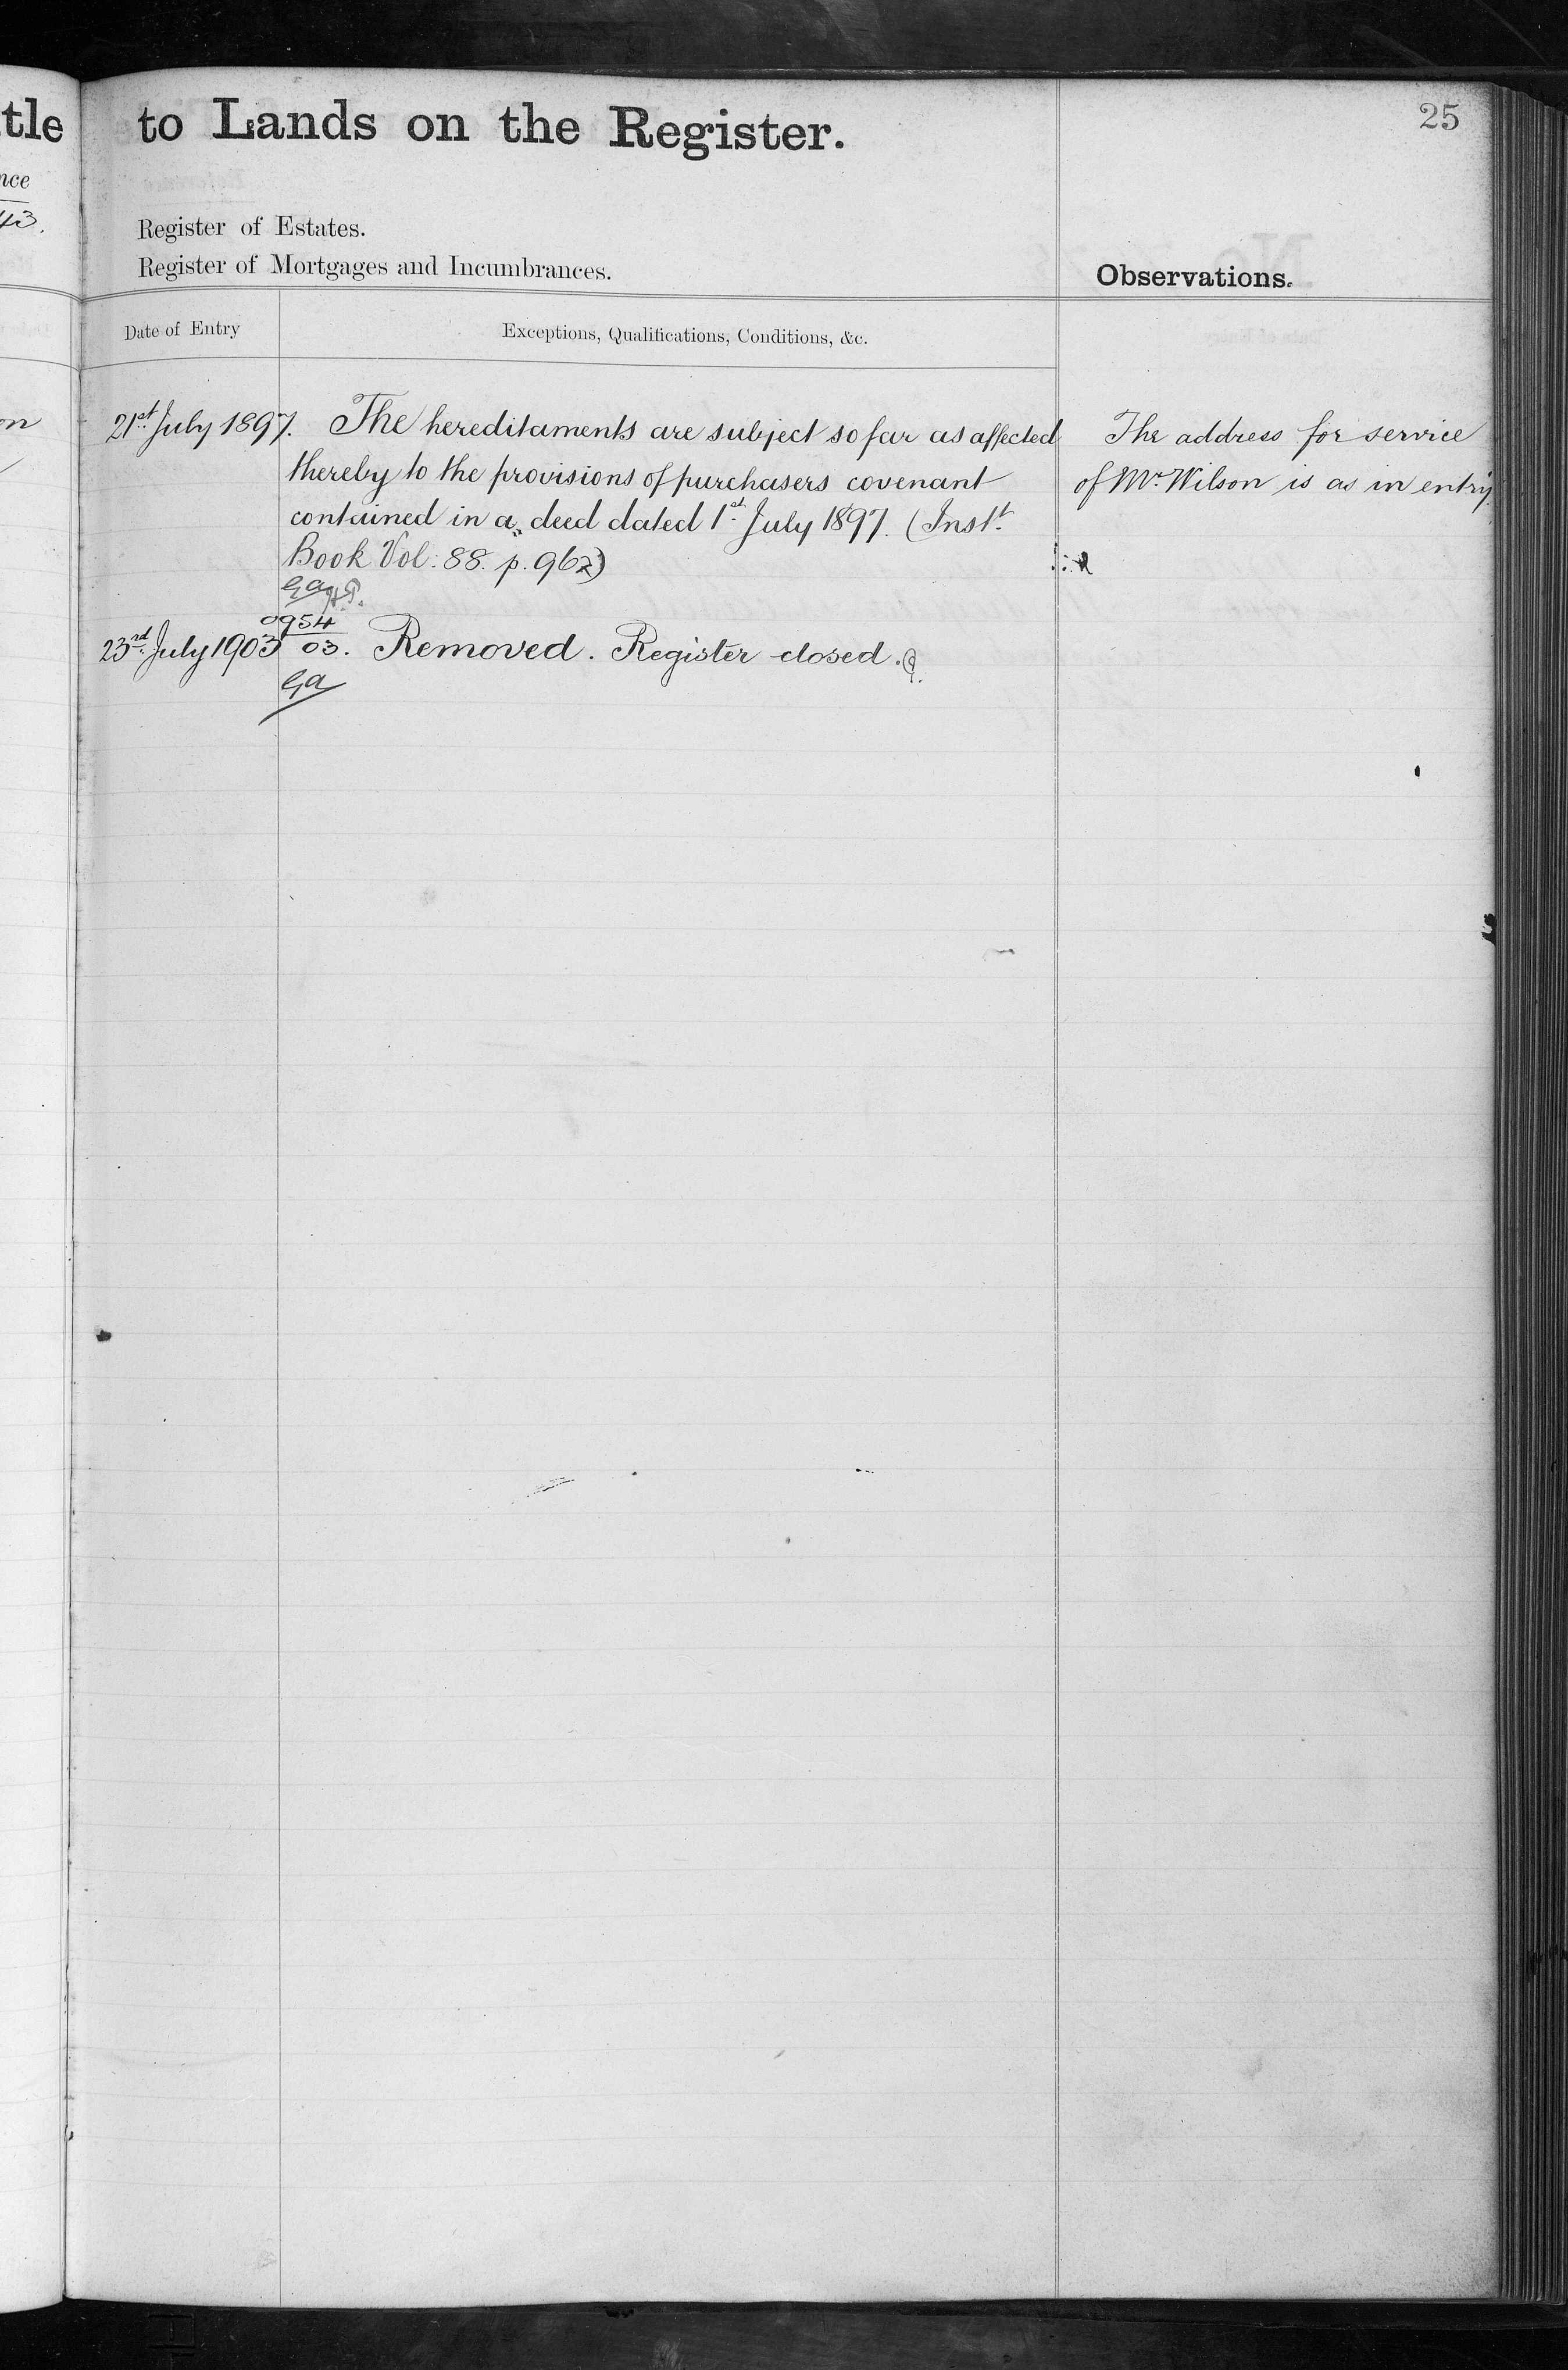 tle
nce
43.
on
to Lands on the Register.
25
Register of Estates.
Register of Mortgages and Incumbrances.
Observations.
Date of Entry
Exceptions, Qualifications, Conditions, &c.
21st July 1897. The hereditaments are subject so far as affected
thereby to the provisions of purchasers covenant
contained in a deed dated 1st July 1897. (Inst.
Book Vol: 88. p. 962)
0954
23rd July 1903 03. Removed. Register closed.
Ga
The address for service
of Mr. Wilson is as in entry.